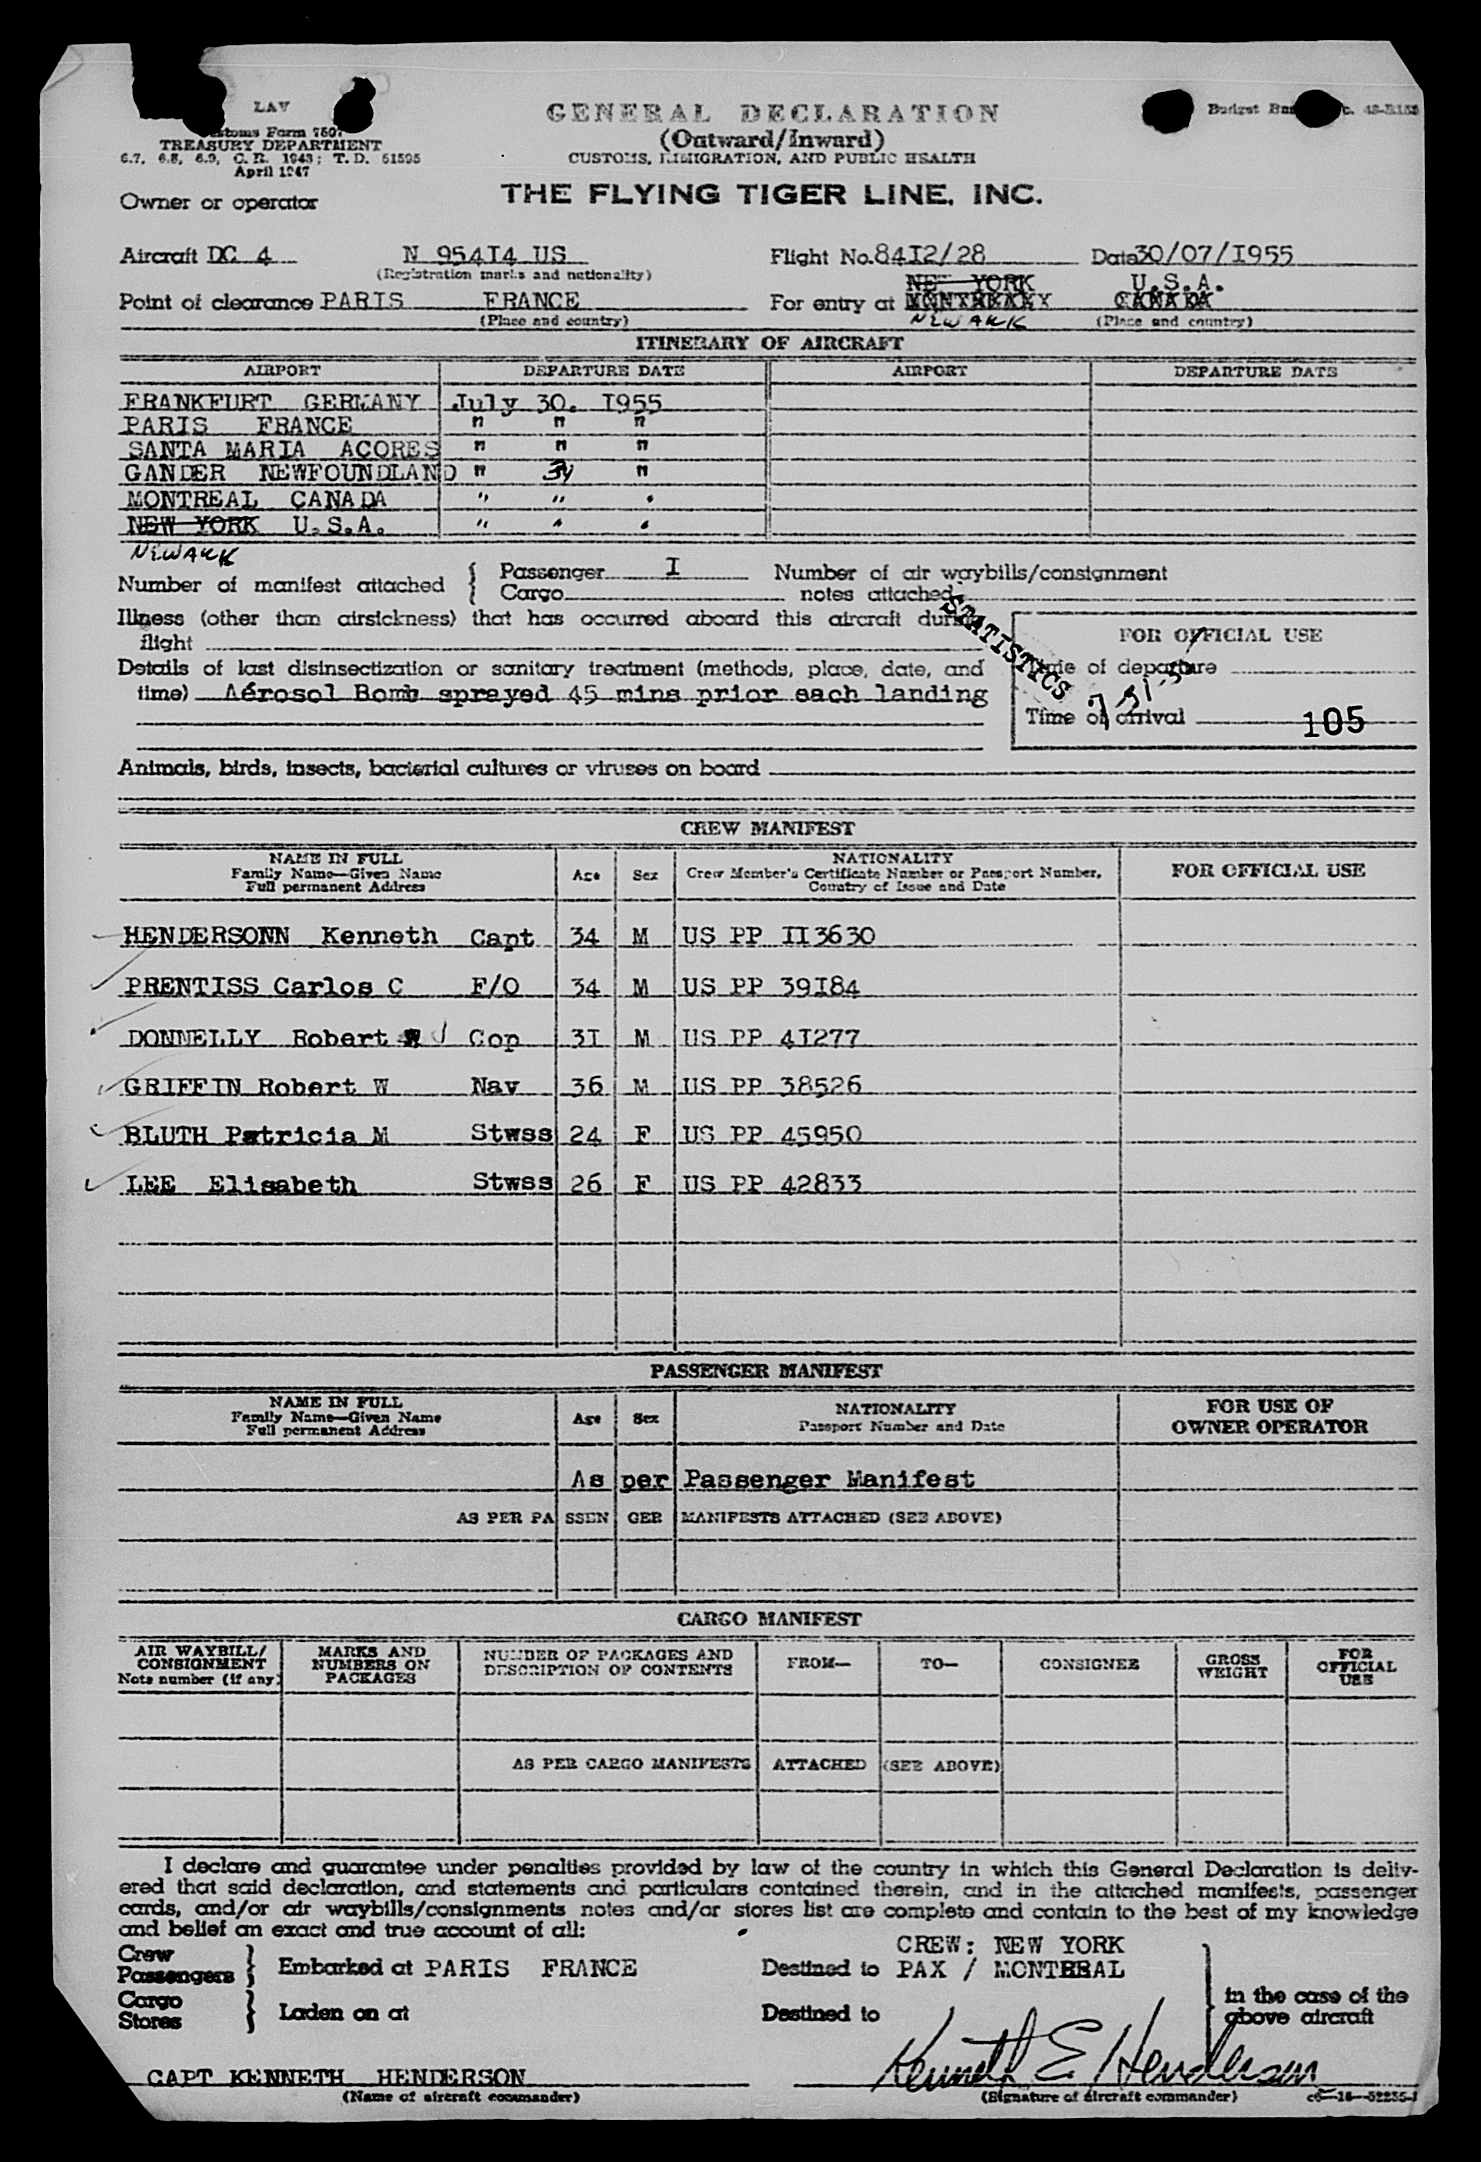 LAV
GENERAL DECLARATION
(Outward/Inward)
CUSTOMS, IMMIGRATION, AND PUBLIC HEALTH
Customs Form 7507
TREASURY DEPARTMENT
6.7, 6.8, 6.9, C. R. 1943; T. D. 51595
April 1947
Owner or operator THE FLYING TIGER LINE, INC.
Aircraft DC 4 N 95414 US Flight No. 8412/28 Date 30/07/1955
(Registration marks and nationality)
NEW YORK U.S.A.
Point of clearance PARIS FRANCE For entry at MONTREAL CANADA
(Place and country) NEWARK (Place and country)
ITINERARY OF AIRCRAFT
AIRPORT DEPARTURE DATE AIRPORT DEPARTURE DATE
FRANKFURT GERMANY July 30. 1955
PARIS FRANCE " " "
SANTA MARIA ACORES " " "
GANDER NEWFOUNDLAND " 31 "
MONTREAL CANADA " " "
NEW YORK U.S.A. " " "
NEWARK
Number of manifest attached { Passenger I Number of air waybills/consignment
Cargo notes attached
Illness (other than airsickness) that has occurred aboard this aircraft during
flight
STATISTICS
FOR OFFICIAL USE
Details of last disinsectization or sanitary treatment (methods, place, date, and Time of departure
time) Aérosol Bomb sprayed 45 mins prior each landing
Time of arrival 105
Animals, birds, insects, bacterial cultures or viruses on board
CREW MANIFEST
NAME IN FULL
Family Name—Given Name
Full permanent Address
Age Sex
NATIONALITY
Crew Member's Certificate Number or Passport Number,
Country of Issue and Date
FOR OFFICIAL USE
HENDERSONN Kenneth Capt 34 M US PP II3630
PRENTISS Carlos C F/O 34 M US PP 39I84
DONNELLY Robert J Cop 3I M US PP 4I277
GRIFFIN Robert W Nav 36 M US PP 38526
BLUTH Patricia M Stwss 24 F US PP 45950
LEE Elisabeth Stwss 26 F US PP 42833
PASSENGER MANIFEST
NAME IN FULL
Family Name—Given Name
Full permanent Address
Age Sex
NATIONALITY
Passport Number and Date
FOR USE OF
OWNER OPERATOR
As per Passenger Manifest
AS PER PASSENGER MANIFESTS ATTACHED (SEE ABOVE)
CARGO MANIFEST
AIR WAYBILL/
CONSIGNMENT
Note number (if any)
MARKS AND
NUMBERS ON
PACKAGES
NUMBER OF PACKAGES AND
DESCRIPTION OF CONTENTS
FROM—
TO—
CONSIGNEE
GROSS
WEIGHT
FOR
OFFICIAL
USE
AS PER CARGO MANIFESTS ATTACHED (SEE ABOVE)
I declare and guarantee under penalties provided by law of the country in which this General Declaration is deliv-
ered that said declaration, and statements and particulars contained therein, and in the attached manifests, passenger
cards, and/or air waybills/consignments notes and/or stores list are complete and contain to the best of my knowledge
and belief an exact and true account of all:
CREW: NEW YORK
Crew
Passengers } Embarked at PARIS FRANCE Destined to PAX / MONTREAL
Cargo
Stores } Laden on at Destined to
in the case of the
above aircraft
CAPT KENNETH HENDERSON Kenneth E Henderson
(Name of aircraft commander) (Signature of aircraft commander)